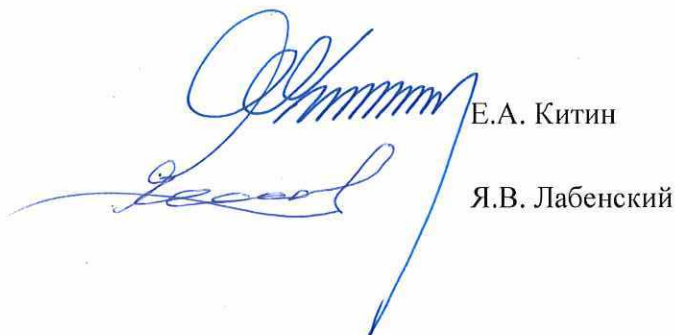 Е.А. Китин
Я.В. Лабенский